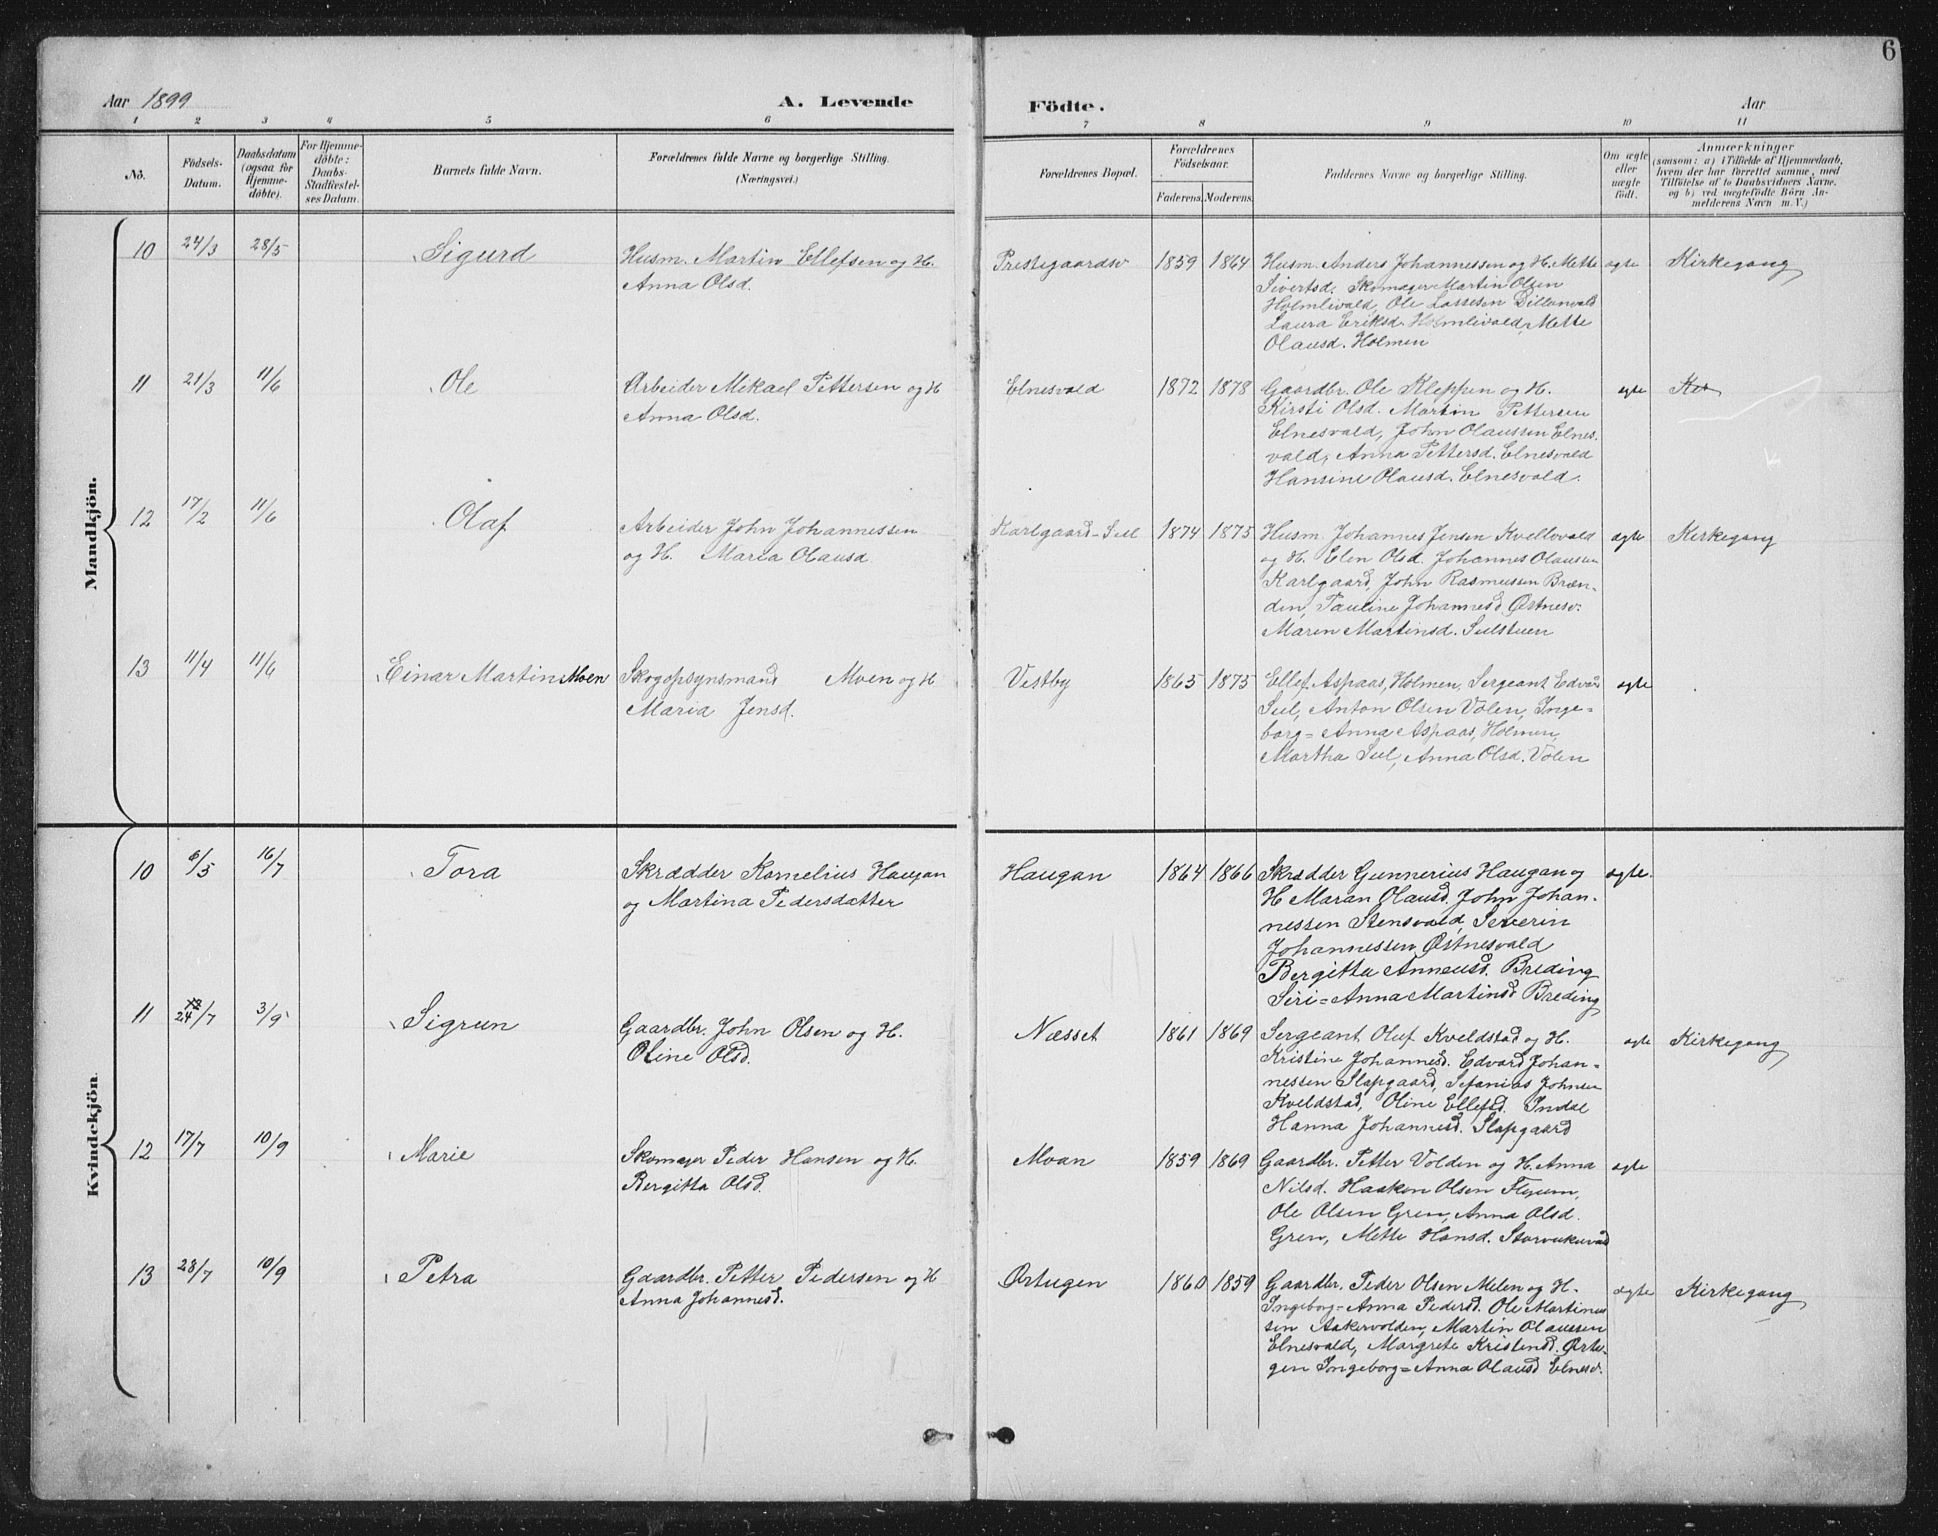 6
Aar 1899
A. Levende
Födte.
Aar
1 2 3 4 5 6 7 8 9 10 11
No.
Födsels-
Datum.
Daabsdatum
(ogsaa for
Hjemme-
döbte).
For Hjemme-
döbte:
Daabs-
Stadfæstel-
ses Datum.
Barnets fulde Navn.
Forældrenes fulde Navne og borgerlige Stilling.
(Næringsvei.)
Forældrenes Bopæl.
Forældrenes
Födselsaar.
Faderens. Moderens.
Faddernes Navne og borgerlige Stilling.
Om ægte
eller
uægte
født.
Anmærkninger
(saasom: a) i Tilfælde af Hjemmedaab,
hvem der har forrettet samme, med
Tilföielse af to Daabsvidners Navne,
og b) ved uægtefödte Börn An-
melderens Navn m. V.)
Mandkjön.
10 24/3 28/5 Sigurd Husm. Martin Ellefsen og H.
Anna Olsd.
Prestegaardsv 1859 1864 Husm. Anders Johannessen og H. Mette
Sivertsd. Skomager Martin Olsen
Holmlivald, Ole Lassesen Dillanvald
Laura Eriksd. Holmlivald, Mette
Olausd. Holmen
ægte Kirkegang
11 21/3 11/6 Ole Arbeider Mekael Pettersen og H
Anna Olsd.
Elnesvald 1872 1878 Gaardbr. Ole Kleppen og H.
Kirsti Olsd. Martin Pettersen
Elnesvald, John Olaussen Elnes-
vald, Anna Pettersd. Elnesvald
Hansine Olausd. Elnesvald.
ægte
12 17/2 11/6 Olaf Arbeider John Johannessen
og H. Maria Olausd
Karlgaard-Sul 1874 1875 Husm. Johannes Jensen Kvellovald
og H. Elen Olsd. Johannes Olausen
Karlgaard, John Rasmussen Bræn-
den, Pauline Johannesd Østnesv.
Maren Martinsd. Sulstuen
ægte Kirkegang
13 11/4 11/6 Einar Martin Moen Skogopsynsmand Moen og H
Maria Jensd.
Vestby 1865 1875 Ellef Aspaas, Holmen, Sergeant Edvar
Sul, Anton Olsen Volen, Inge=
borg=Anna Aspaas, Holmen,
Martha Sul, Anna Olsd. Volen
ægte
Kvindekjön.
10 6/5 16/7 Tora Skrædder Kornelius Haugan
og Martina Pedersdatter
Haugan 1864 1866 Skrædder Gunnerius Haugan og
H Maran Olausd. John Johan-
nessen Stensvald, Severin
Johannessen Østnesvald
Bergitta Anneusd. Breding
Siri=Anna Martinsd Breding
ægte.
11 24/7 3/9 Sigrun Gaardbr. John Olsen og H.
Oline Olsd.
Næsset 1861 1869 Sergeant Oluf Kveldstad og H.
Kristine Johannesd. Edvard Johan=
nessen Slapgaard, Sefanias Johnsen
Kveldstad, Oline Ellefsd. Indal
Hanna Johannesd. Slapgaard
ægte Kirkegang
12 17/7 10/9 Marie Skomager Peder Hansen og H.
Bergitta Olsd.
Moan 1859 1869 Gaardbr. Petter Volden og H. Anna
Nilsd. Haaken Olsen Flyum,
Ole Olsen Gren, Anna Olsd.
Gren, Mette Hansd. Storvukuvald
ægte
13 28/7 10/9 Petra Gaardbr. Petter Pedersen og H
Anna Johannesd.
Ørtugen 1860 1859 Gaardbr. Peder Olsen Melen og H.
Ingeborg=Anna Pedersd. Ole Martinus
sen Aakervolden, Martin Olaussen
Elnesvald, Margrete Kristensd. Ørtu-
gen Ingeborg=Anna Olausd Elnesv.
ægte Kirkegang